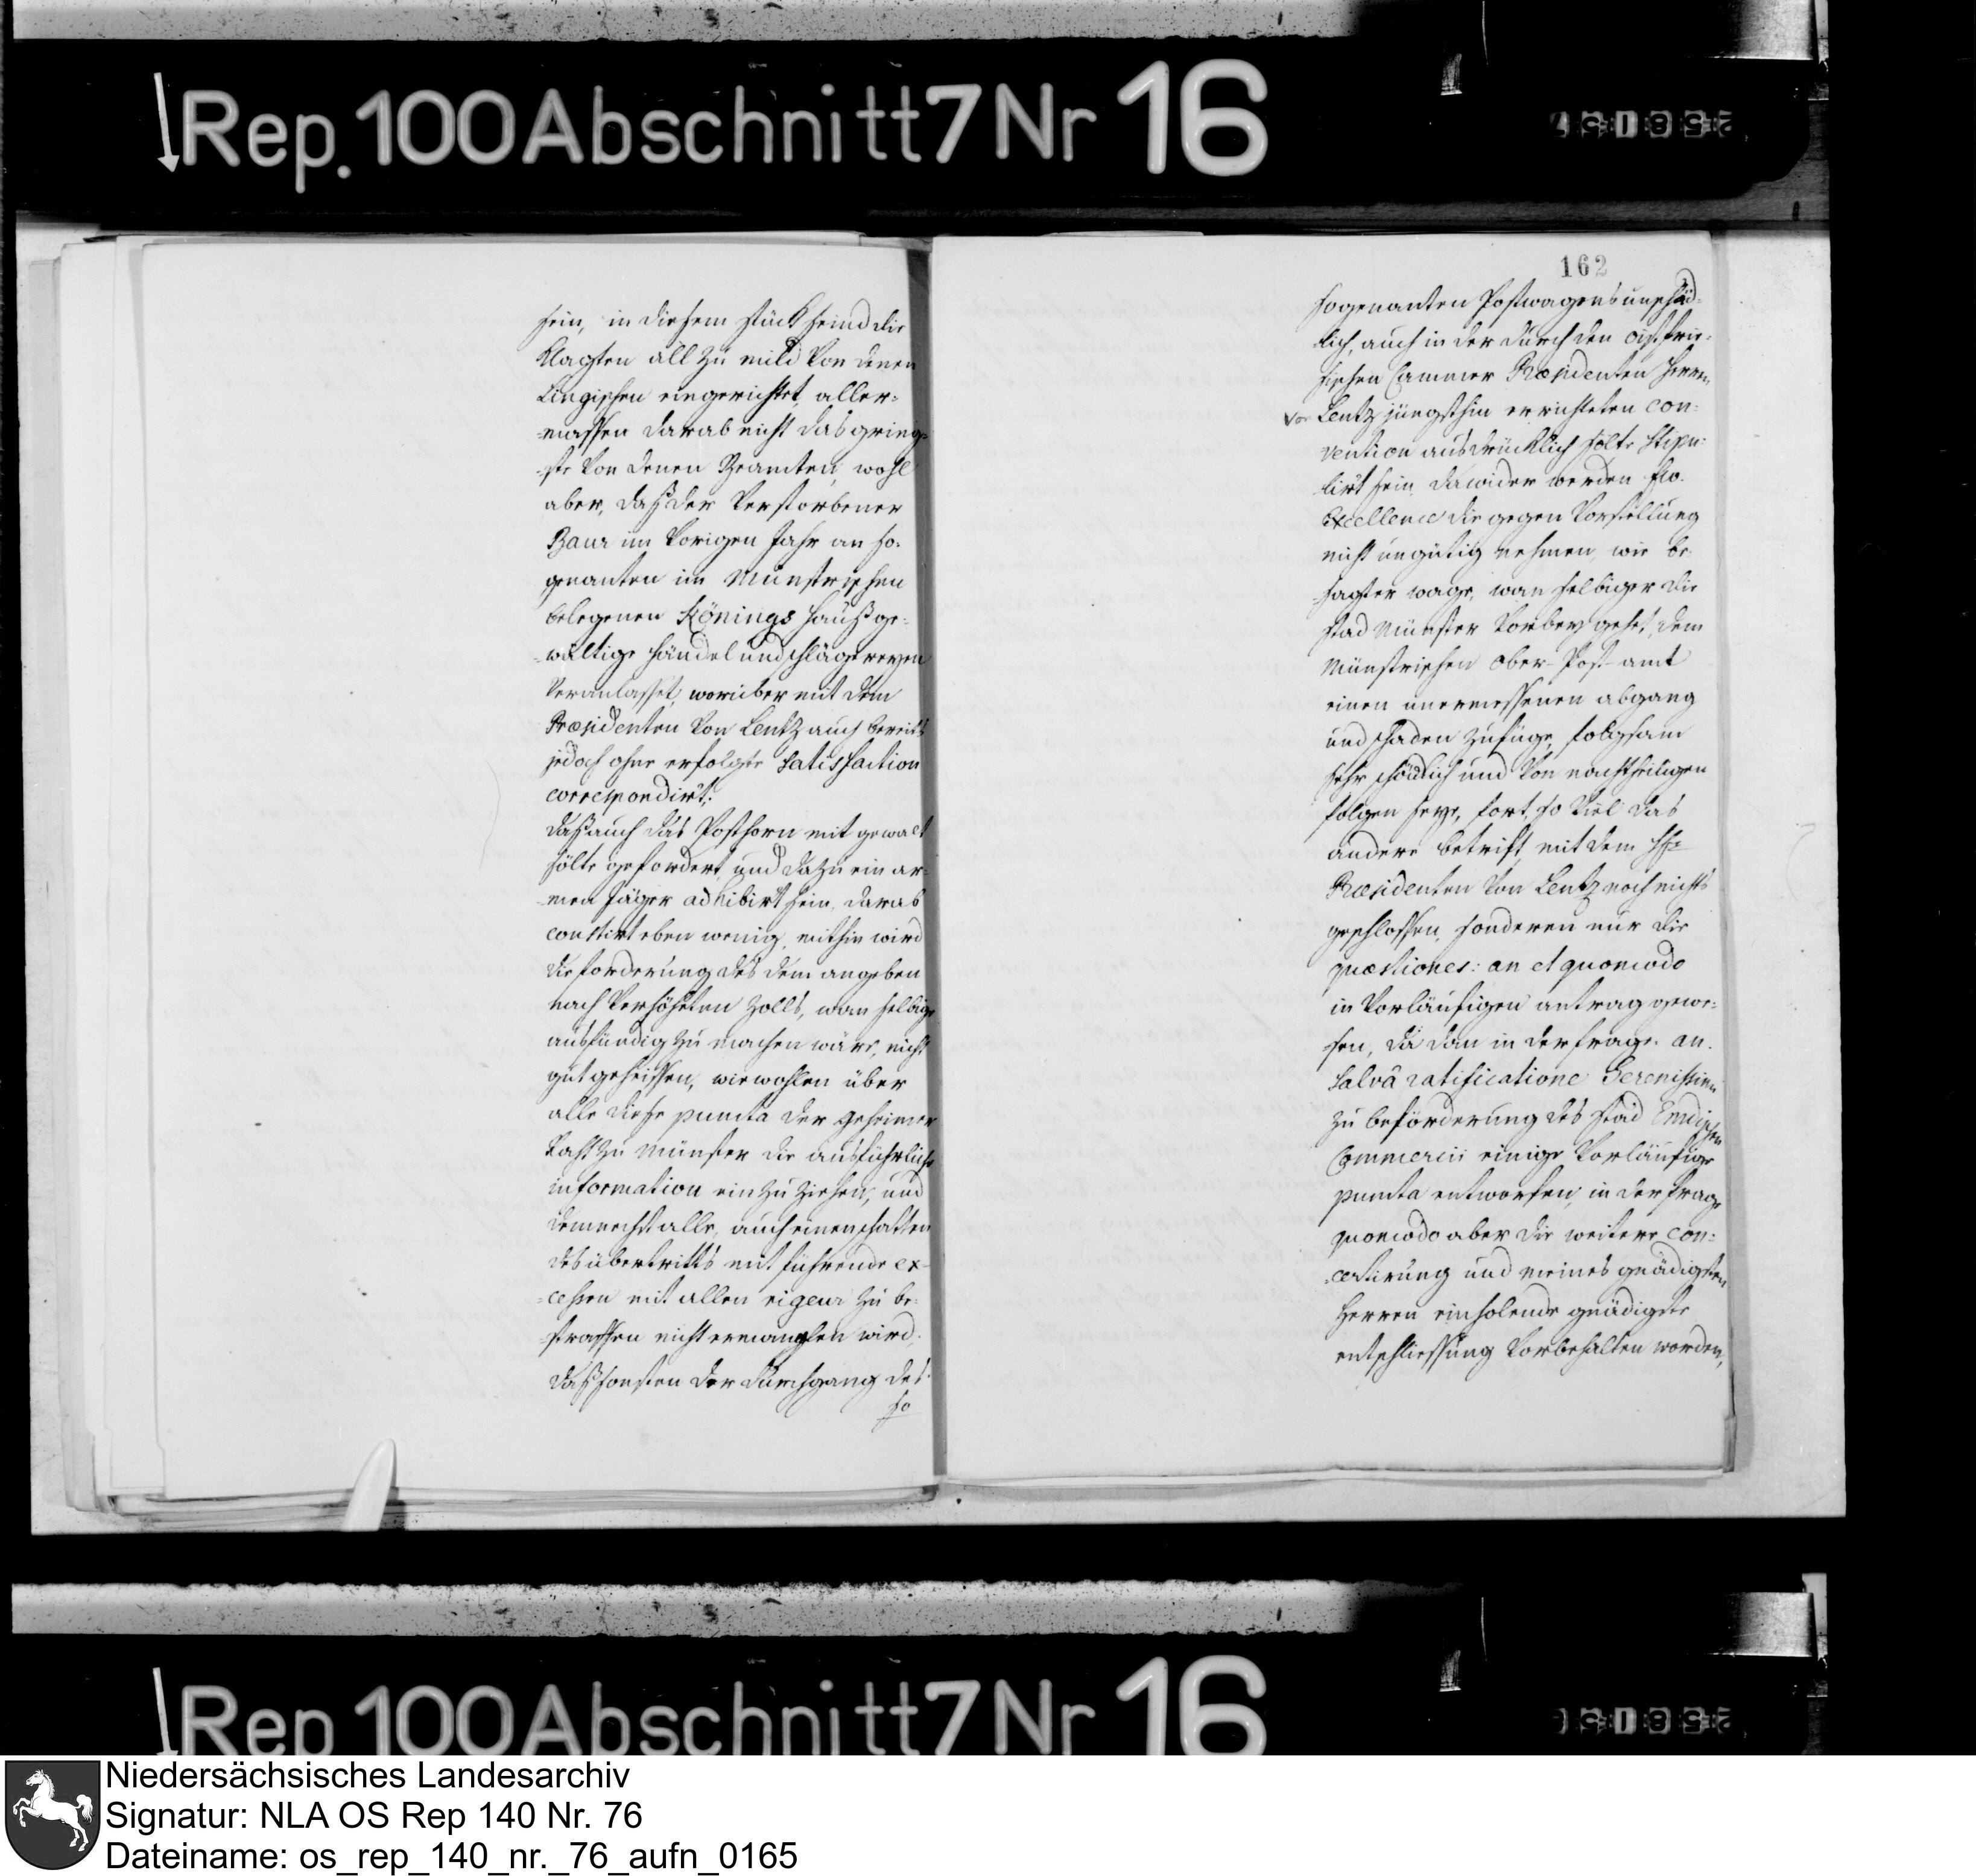 Rep. 100 Abschnitt 7 Nr 16
sein, in diesem stück seind die
Klagten all zu mild von denen
Lingischen eingerichtet, aller-
-massen darab nicht das gering-
-ste von denen Beamten, wohl
aber, daß der verstorbener
Baur im vorigen Jahr an so-
genanten im Münstrischen
belegenen Könings Hauß ge-
-waltige händel und schlägereyen
veranlasset, worüber mit dem
Præsidenten von Lentz auch bereits
jedoch ohne erfolgte Satisfaction
correspondirt;
daß auch das Posthorn mit gewalt
sölte gefordert, und dazu ein ar-
-men Jäger adhibirt sein, darab
constirt eben wenig, mithin wird
die forderung des dem angeben
nach verhöheten Zolls, wan selbige
ausfündig zu machen wäre, nicht
gut geheissen, wiewohlen über
alle diese puncta der geheimer
Raht zu Münster die ausführliche
information ein zu ziehen, und
demnechst alle, auch einen schatten
des übertritts mit führende ex-
-cessen mit allen rigeur zu be-
-straffen nicht ermanglen wird.
daß sonsten der durchgang des
so
162
sogenanten Postwagens unschäd-
lich, auch in der durch den ostfrie-
sischen Cammer Præsidenten Herren
von Lentz jüngsthin errichteten con-
vention ausdrücklich sölte stipu-
lirt sein, dawider werden Ew.
Excellence die gegen Vorstellung
nicht ungütig nehmen, wie be-
sagter wage, wan selbiger die
stad Münster vorbey gehet, dem
Münstrischen Ober-Post-amt
einen unermessenen abgang
und schaden zufüge, folgsam
sehr schädlich und von nachtheiligen
folgen seye, fort, so viel das
andere betrift, mit dem
Præsidenten von Lentz noch nichts
geschlossen, sonderen nur die
quæstiones: an et quomodo
in vorläufigen antrag gewe-
sen, da dan in der frage an
salvâ ratificatione Serenissimi
zu beförderung des stad Emdischen
Commercii einige vorläufige
puncta entworfen, in der frage
quomodo aber die weitere con-
-certirung und meines gnädigsten
Herren einholende gnädigste
entschliessung vorbehalten worden,
Rep 100 Abschnitt 7 Nr 16
Niedersächsisches Landesarchiv
Signatur: NLA OS Rep 140 Nr. 76
Dateiname: os_rep_140_nr._76_aufn_0165